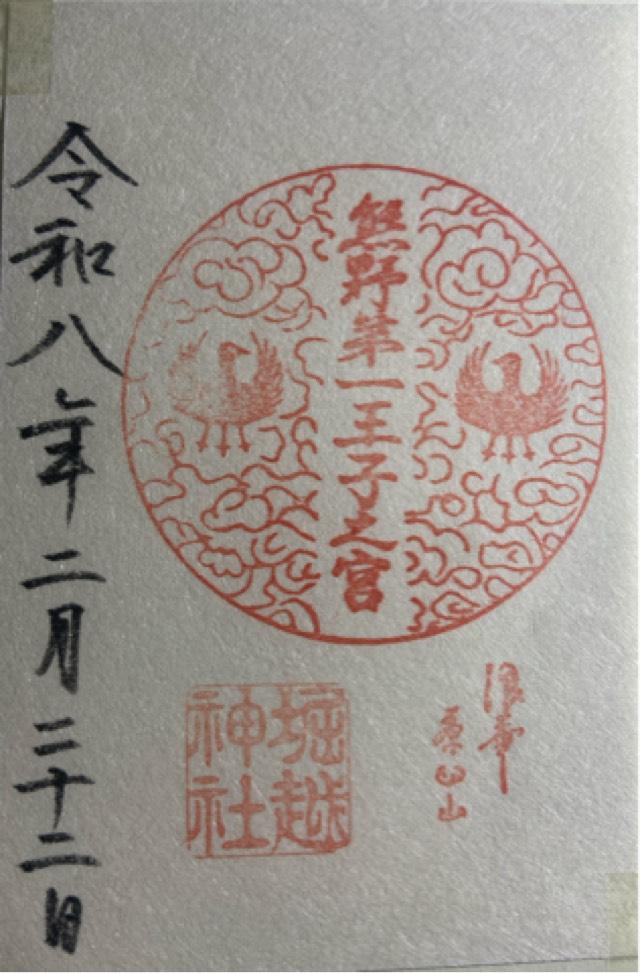 熊野第一王子之宮
浪華
茶臼山
堀越
神社
令和八年二月二十二日